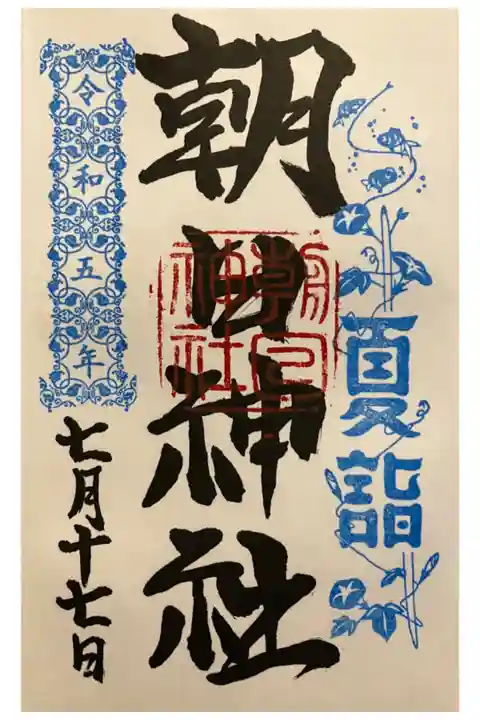 夏詣
朝日神社
朝日
神社
令和五年
七月十七日